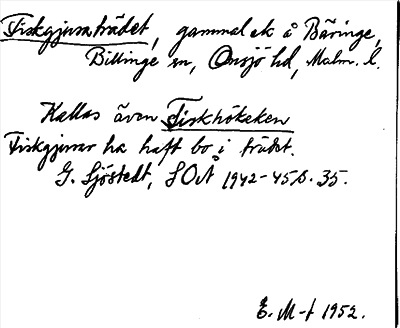 Fiskgjusaträdet, gammal ek å Bäringe,
Billinge sn, Onsjö hd, Malm. l.
Kallas även Fiskhökeken
Fiskgjusar ha haft bo i trädet.
G. Sjöstedt, SOÅ 1942-45 s. 35.
E. M-t 1952.